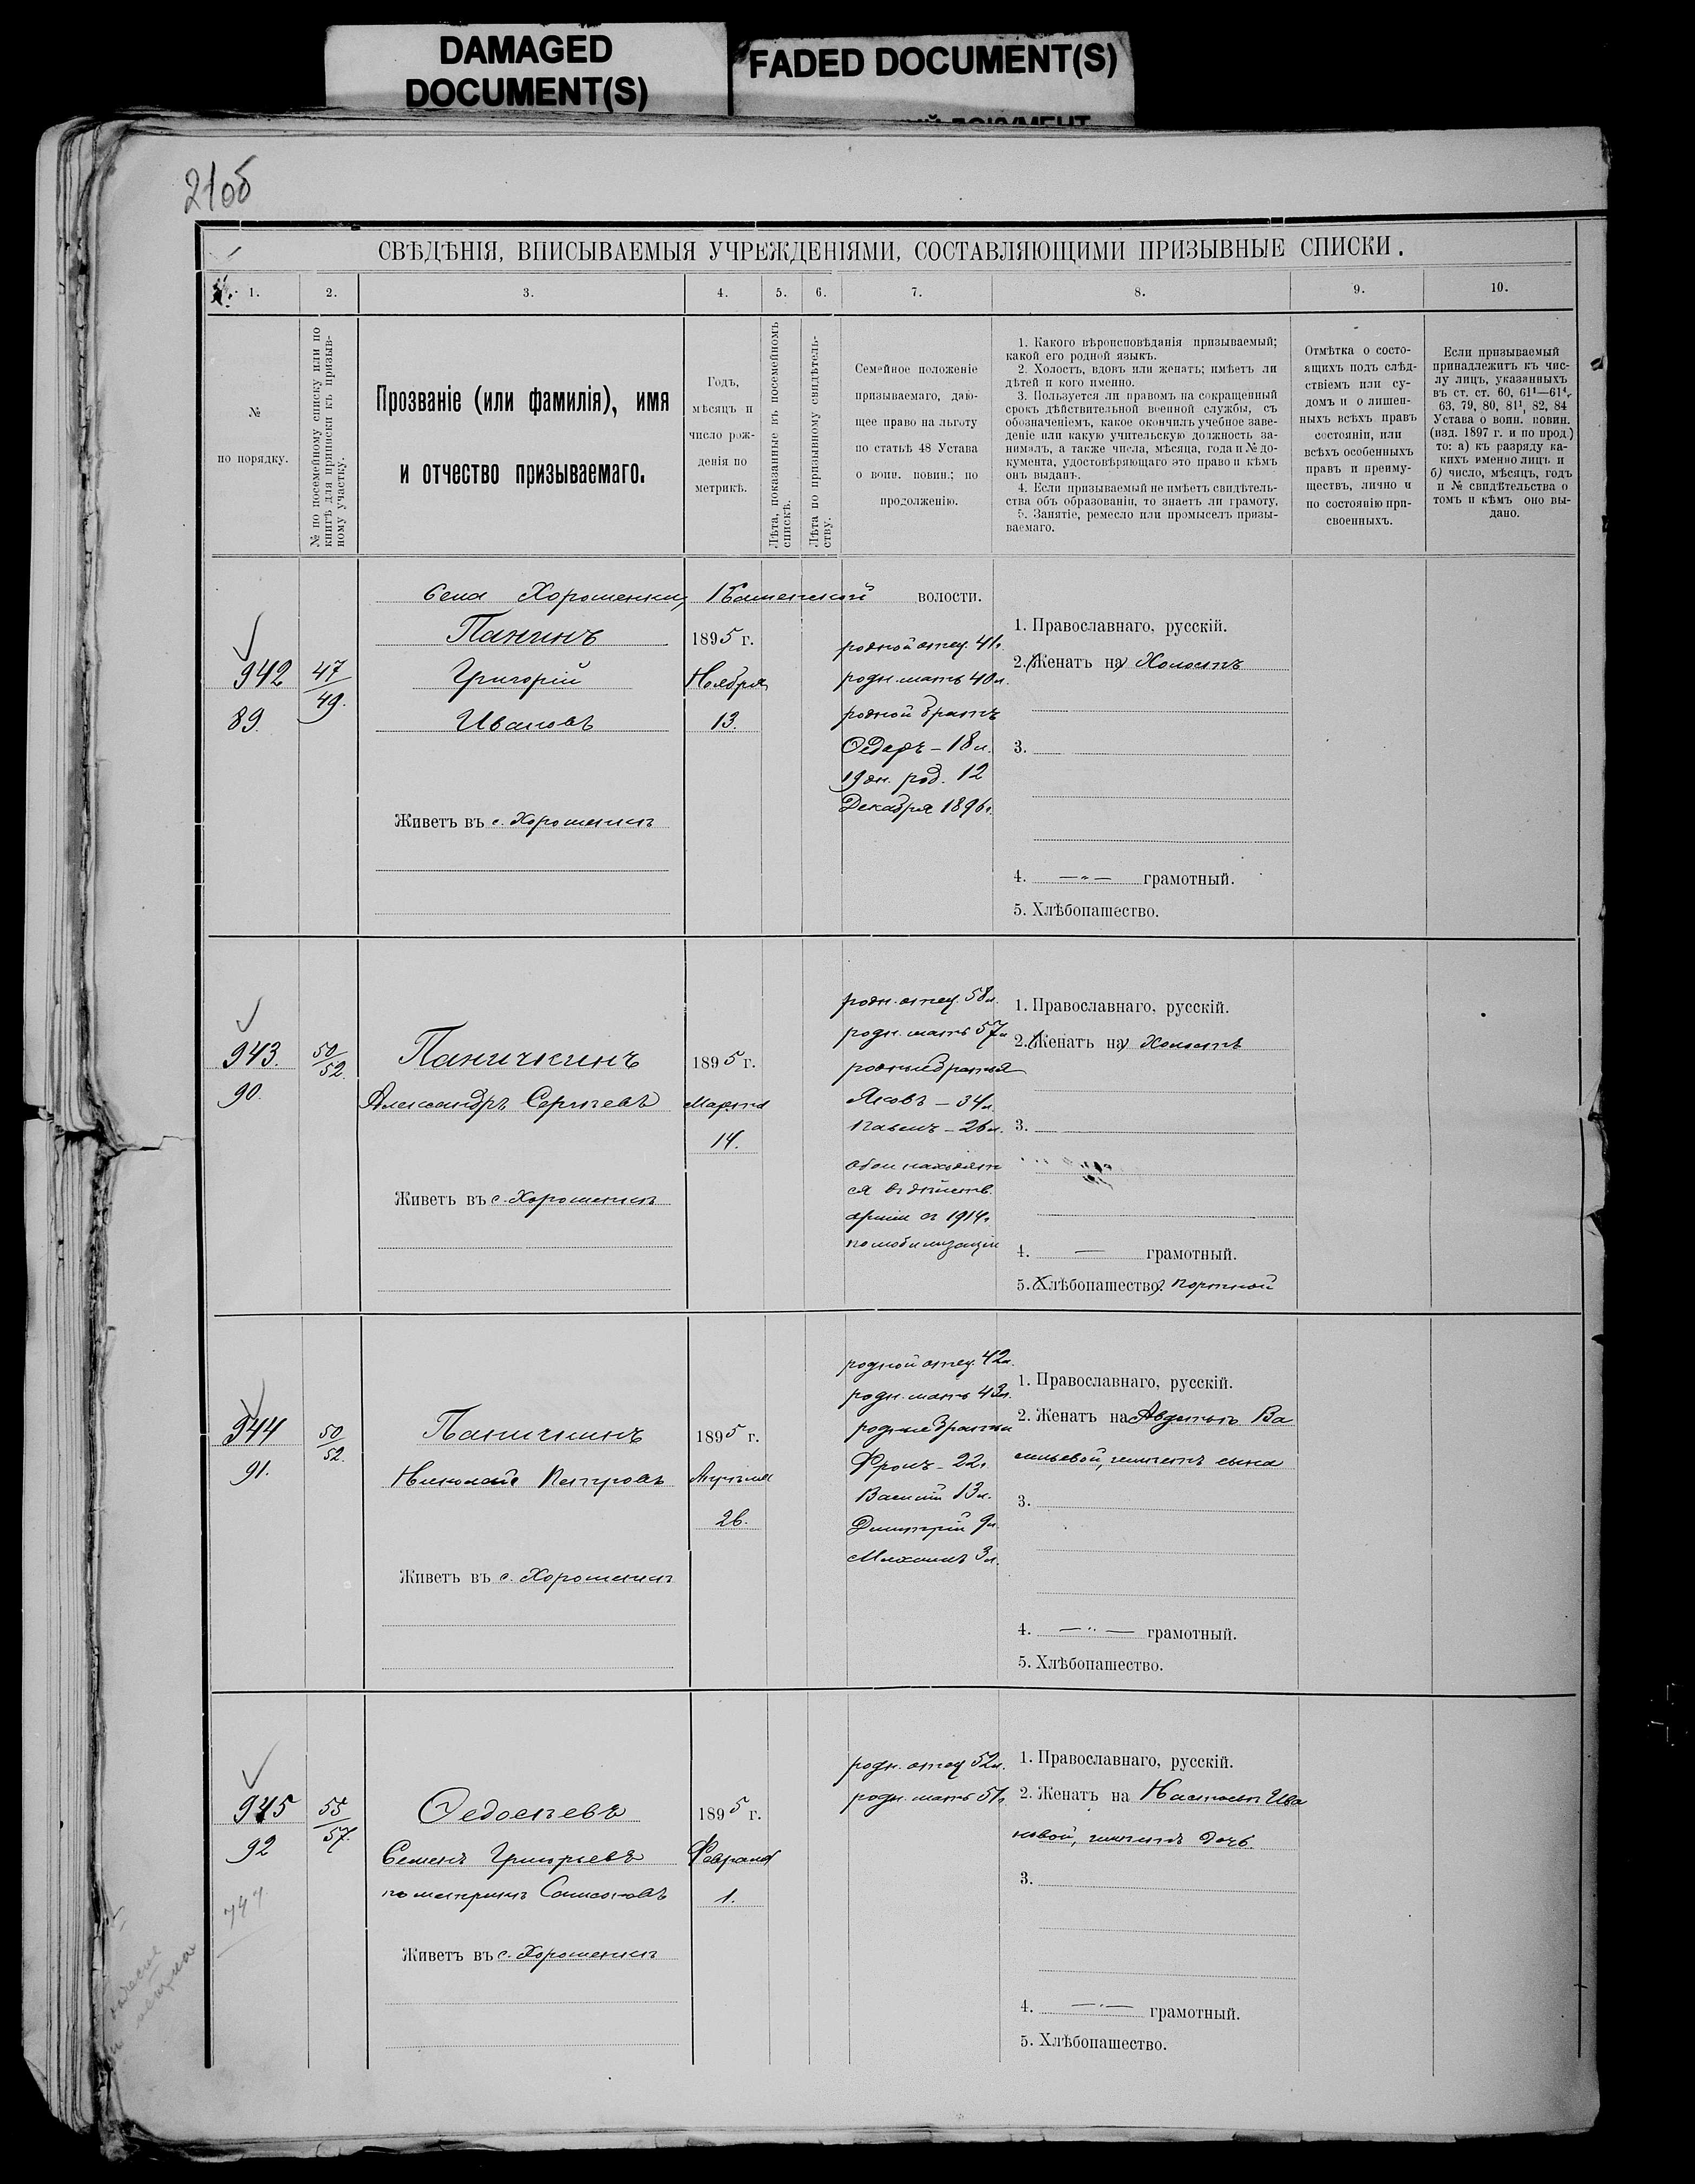 DAMAGED
DOCUMENT(S)
FADED DOCUMENT(S)
2106
СВѢДѢНІЯ, ВПИСЫВАЕМЫЯ УЧРЕЖДЕНІЯМИ, СОСТАВЛЯЮЩИМИ ПРИЗЫВНЫЕ СПИСКИ.
1.
2.
3.
4.
5.
6.
7.
8.
9.
10.
№
по порядку.
№ по посемейному списку или по
книгѣ для приписки къ призыв-
ному участку.
Прозваніе (или фамилія), имя
и отчество призываемаго.
Годъ,
мѣсяцъ и
число рож-
денія по
метрикѣ.
Лѣта, показанные въ посемейномъ
спискѣ.
Лѣта по призывному свидѣтель-
ству.
Семейное положеніе
призываемаго, даю-
щее право на льготу
по статьѣ 48 Устава
о воин. повин.; по
продолженію.
1. Какого вѣроисповѣданія призываемый;
какой его родной языкъ.
2. Холостъ, вдовъ или женатъ; имѣетъ ли
дѣтей и кого именно.
3. Пользуется ли правомъ на сокращенный
срокъ дѣйствительной военной службы, съ
обозначеніемъ, какое окончилъ учебное заве-
деніе или какую учительскую должность за-
нималъ, а также числа, мѣсяца, года и № до-
кумента, удостовѣряющаго это право и кѣмъ
онъ выданъ.
4. Если призываемый не имѣетъ свидѣтель-
ства объ образованіи, то знаетъ ли грамоту.
5. Занятіе, ремесло или промыселъ призы-
ваемаго.
Отмѣтка о состо-
ящихъ подъ слѣд-
ствіемъ или су-
домъ и о лишен-
ныхъ всѣхъ правъ
состоянія, или
всѣхъ особенныхъ
правъ и преиму-
ществъ, лично и
по состоянію при-
своенныхъ.
Если призываемый
принадлежитъ къ чис-
лу лицъ, указанныхъ
въ ст. ст. 60, 61¹—61⁴,
63, 79, 80, 81¹, 82, 84
Устава о воин. повин.
(изд. 1897 г. и по прод.)
то: а) къ разряду ка-
кихъ именно лицъ и
б) число, мѣсяцъ, годъ
и № свидѣтельства о
томъ и кѣмъ оно вы-
дано.
Села Хорошенки, Каменской волости.
942
89.
47
49.
Панинъ
Григорій
Ивановъ
Живетъ въ с. Хорошенкѣ
1895 г.
Ноября
13.
родной отец. 41л.
родн. мать 40л.
родной братъ
Ѳедоръ – 18 л.
19 дн. род. 12
Декабря 1896г.
1. Православнаго, русскій.
2. (Женатъ на) Холостъ
3.
4. —„— грамотный.
5. Хлѣбопашество.
943.
90.
50
52.
Паничкинъ
Александръ Сергѣевъ
Живетъ въ с. Хорошенкѣ
1895 г.
Марта
14.
родн. отец. 58л.
родн. мать 57л
родные братья
Яковъ – 34л.
Павелъ – 26л.
обои находят
ся въ дѣйств.
арміи съ 1914г.
по мобилизаціи
1. Православнаго, русскій.
2. (Женатъ на) Холостъ
3.
4. — грамотный.
5. (Хлѣбопашество). портной
944
91.
50
52.
Паничкинъ
Николай Петровъ
Живетъ въ с. Хорошенкѣ
1895 г.
Апрѣля
26.
родной отец. 42л.
родн. мать 43л.
родные братья
Фролъ – 22г.
Василій 13л.
Дмитрій 9л.
Михаилъ 3л.
1. Православнаго, русскій.
2. Женатъ на Авдотьѣ Ва
сильевой, имѣетъ сына
3.
4. —„— грамотный.
5. Хлѣбопашество.
945
92
747
55
57.
Ѳедосѣевъ
Семенъ Григорьевъ
по метрикѣ Самсоновъ
Живетъ въ с. Хорошенкѣ
1895 г.
Февраля
1.
родн. отец 52л.
родн. мать 51г.
1. Православнаго, русскій.
2. Женатъ на Настасьѣ Ива
новой, имѣетъ дочь.
3.
4. —„— грамотный.
5. Хлѣбопашество.